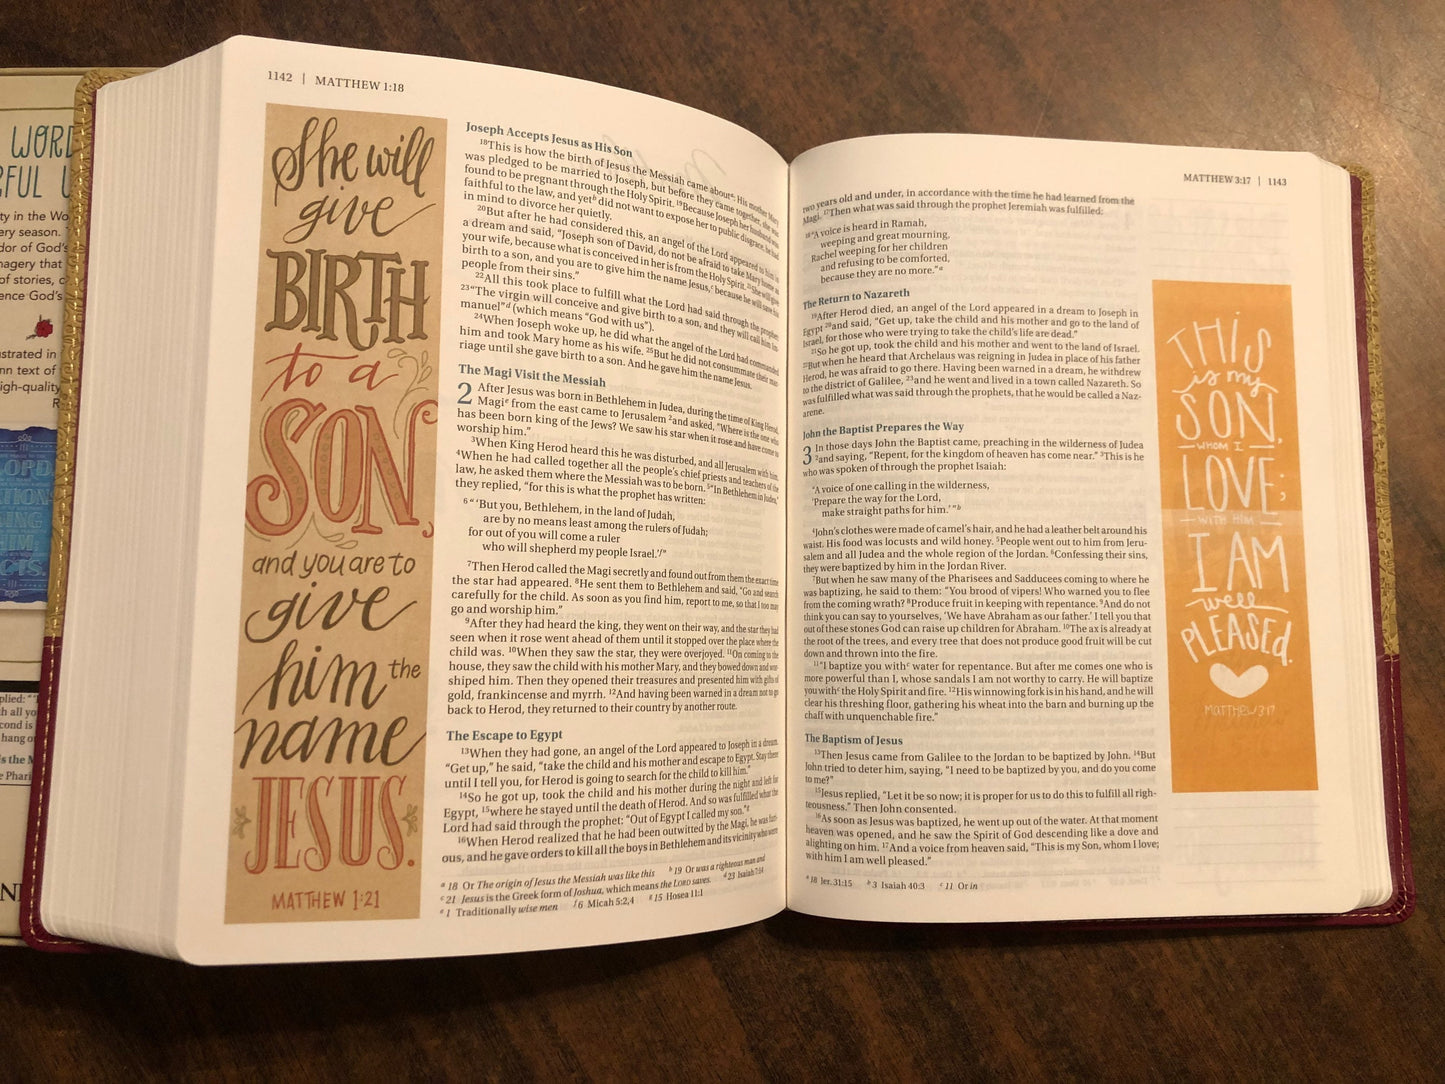 WORD
RFUL
ity in the Wo
ery season.
dor of God's
nagery that
of stories,
ence God's
ustrated in
nn text of
igh-quality
LORD
HIM,
plied: "
th all yo
cond is
hang o
is the M
e Phari
1142 | MATTHEW 1:18
She will
give
BIRTH
to a
SON,
and you are to
give
him the
name
JESUS.
MATTHEW 1:21
Joseph Accepts Jesus as His Son
18This is how the birth of Jesus the Messiah came aboutª: His mother Mary
was pledged to be married to Joseph, but before they came together, she was
found to be pregnant through the Holy Spirit. 19Because Joseph her husband was
faithful to the law, and yetᵇ did not want to expose her to public disgrace, he had
in mind to divorce her quietly.
20But after he had considered this, an angel of the Lord appeared to him in
a dream and said, "Joseph son of David, do not be afraid to take Mary home as
your wife, because what is conceived in her is from the Holy Spirit. 21She will give
birth to a son, and you are to give him the name Jesus,ᶜ because he will save his
people from their sins."
22All this took place to fulfill what the Lord had said through the prophet:
23"The virgin will conceive and give birth to a son, and they will call him Im-
manuel"ᵈ (which means "God with us").
24When Joseph woke up, he did what the angel of the Lord had commanded
him and took Mary home as his wife. 25But he did not consummate their mar-
riage until she gave birth to a son. And he gave him the name Jesus.
The Magi Visit the Messiah
2 After Jesus was born in Bethlehem in Judea, during the time of King Herod,
Magiᵉ from the east came to Jerusalem 2and asked, "Where is the one who
has been born king of the Jews? We saw his star when it rose and have come to
worship him."
3When King Herod heard this he was disturbed, and all Jerusalem with him.
4When he had called together all the people's chief priests and teachers of the
law, he asked them where the Messiah was to be born. 5"In Bethlehem in Judea,"
they replied, "for this is what the prophet has written:
6" 'But you, Bethlehem, in the land of Judah,
are by no means least among the rulers of Judah;
for out of you will come a ruler
who will shepherd my people Israel.'ᶠ"
7Then Herod called the Magi secretly and found out from them the exact time
the star had appeared. 8He sent them to Bethlehem and said, "Go and search
carefully for the child. As soon as you find him, report to me, so that I too may
go and worship him."
9After they had heard the king, they went on their way, and the star they had
seen when it rose went ahead of them until it stopped over the place where the
child was. 10When they saw the star, they were overjoyed. 11On coming to the
house, they saw the child with his mother Mary, and they bowed down and wor-
shiped him. Then they opened their treasures and presented him with gifts of
gold, frankincense and myrrh. 12And having been warned in a dream not to go
back to Herod, they returned to their country by another route.
The Escape to Egypt
13When they had gone, an angel of the Lord appeared to Joseph in a dream.
"Get up," he said, "take the child and his mother and escape to Egypt. Stay there
until I tell you, for Herod is going to search for the child to kill him."
14So he got up, took the child and his mother during the night and left for
Egypt, 15where he stayed until the death of Herod. And so was fulfilled what the
Lord had said through the prophet: "Out of Egypt I called my son."ᵍ
16When Herod realized that he had been outwitted by the Magi, he was furi-
ous, and he gave orders to kill all the boys in Bethlehem and its vicinity who were
ª 18 Or The origin of Jesus the Messiah was like this ᵇ 19 Or was a righteous man and
ᶜ 21 Jesus is the Greek form of Joshua, which means the LORD saves. ᵈ 23 Isaiah 7:14
ᵉ 1 Traditionally wise men ᶠ 6 Micah 5:2,4 ᵍ 15 Hosea 11:1
MATTHEW 3:17 | 1143
two years old and under, in accordance with the time he had learned from the
Magi. 17Then what was said through the prophet Jeremiah was fulfilled:
18"A voice is heard in Ramah,
weeping and great mourning,
Rachel weeping for her children
and refusing to be comforted,
because they are no more."ª
The Return to Nazareth
19After Herod died, an angel of the Lord appeared in a dream to Joseph in
Egypt 20and said, "Get up, take the child and his mother and go to the land of
Israel, for those who were trying to take the child's life are dead."
21So he got up, took the child and his mother and went to the land of Israel.
22But when he heard that Archelaus was reigning in Judea in place of his father
Herod, he was afraid to go there. Having been warned in a dream, he withdrew
to the district of Galilee, 23and he went and lived in a town called Nazareth. So
was fulfilled what was said through the prophets, that he would be called a Naz-
arene.
John the Baptist Prepares the Way
3 In those days John the Baptist came, preaching in the wilderness of Judea
2and saying, "Repent, for the kingdom of heaven has come near." 3This is he
who was spoken of through the prophet Isaiah:
"A voice of one calling in the wilderness,
'Prepare the way for the Lord,
make straight paths for him.' "ᵇ
4John's clothes were made of camel's hair, and he had a leather belt around his
waist. His food was locusts and wild honey. 5People went out to him from Jeru-
salem and all Judea and the whole region of the Jordan. 6Confessing their sins,
they were baptized by him in the Jordan River.
7But when he saw many of the Pharisees and Sadducees coming to where he
was baptizing, he said to them: "You brood of vipers! Who warned you to flee
from the coming wrath? 8Produce fruit in keeping with repentance. 9And do not
think you can say to yourselves, 'We have Abraham as our father.' I tell you that
out of these stones God can raise up children for Abraham. 10The ax is already at
the root of the trees, and every tree that does not produce good fruit will be cut
down and thrown into the fire.
11"I baptize you withᶜ water for repentance. But after me comes one who is
more powerful than I, whose sandals I am not worthy to carry. He will baptize
you withᶜ the Holy Spirit and fire. 12His winnowing fork is in his hand, and he will
clear his threshing floor, gathering his wheat into the barn and burning up the
chaff with unquenchable fire."
The Baptism of Jesus
13Then Jesus came from Galilee to the Jordan to be baptized by John. 14But
John tried to deter him, saying, "I need to be baptized by you, and do you come
to me?"
15Jesus replied, "Let it be so now; it is proper for us to do this to fulfill all righ-
teousness." Then John consented.
16As soon as Jesus was baptized, he went up out of the water. At that moment
heaven was opened, and he saw the Spirit of God descending like a dove and
alighting on him. 17And a voice from heaven said, "This is my Son, whom I love;
with him I am well pleased."
ª 18 Jer. 31:15 ᵇ 3 Isaiah 40:3 ᶜ 11 Or in
THIS
is my
SON,
WHOM I
LOVE;
WITH HIM
I AM
well
PLEASED.
MATTHEW 3:17